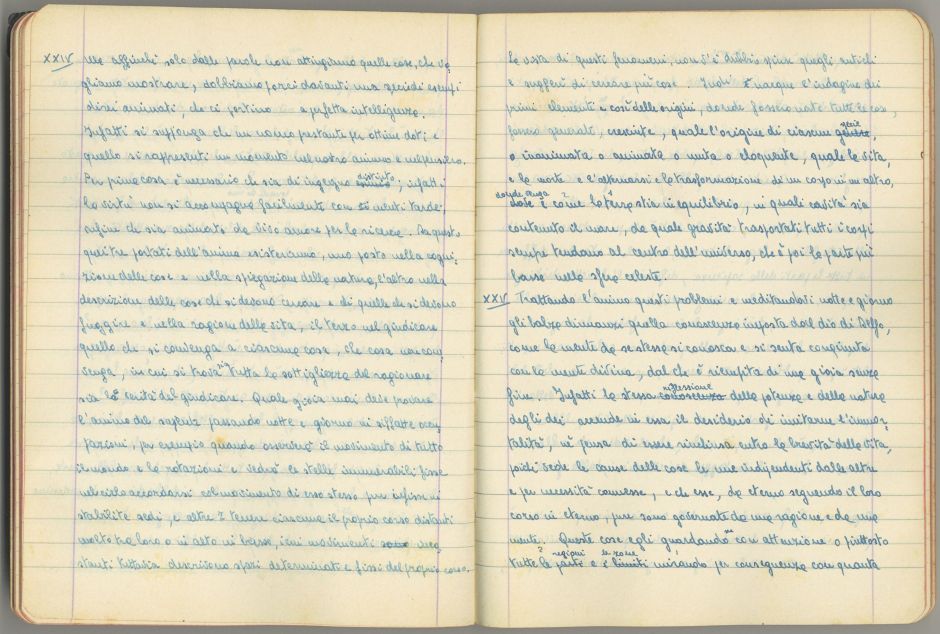 XXIV Ma affinché solo dalle parole non attingiamo quelle cose, che vo
gliamo mostrare, dobbiamo porci davanti una specie di esempi
divisi animati, che ci portino a perfetta intelligenza.
Infatti si supponga che un uomo prestante per ottime doti; e
quello si rappresenti un momento nel nostro animo e nel pensiero.
Per prima cosa è necessario che sia di ingegno distinto; infatti
la virtù non si accompagna facilmente con menti tarde;
infine che sia animato da vivo amore per la ricerca. Da questi
portati dell'animo esisteranno, uno posto nella cogni
zione delle cose e nella spiegazione della natura, l'altro nella
descrizione delle cose che si devono cercare e di quelle che si devono
fuggire e nella ragione della vita, il terzo nel giudicare
quello che si convenga a ciascuna cosa, che cosa non con
venga, in cui si trova tutta la sottigliezza del ragionare
sia la verità del giudicare. Quale gioia mai deve provare
l'animo del sapiente passando notte e giorno in siffatte occu
pazioni, per esempio quando osserverà il movimento di tutto
il mondo e la rotazione e vedrà le stelle innumerabili fisse
nel cielo accordarsi col movimento di esso stesso pur infisse in
stabilite sedi, e altre 7 tenere ciascuna il proprio corso distanti
molto tra loro o in alto in basso, i cui movimenti
stanti tuttavia descrivono spazi determinati e fissi del proprio corso.
la vista di questi fenomeni, non v'è dubbio spinse quegli antichi
e suggerì di cercare più cose. Indi nacque l'indagine dei
primi elementi e così delle origini, donde fossero nate tutte le cose
fossero generate, cresciute, quale l'origine di ciascun genere
o inanimata o animata o muta o eloquente, quale la vita,
e la morte e l'alternarsi e la trasformazione di un corpo in un altro,
donde venga
e come la terra stia in equilibrio, in quali cavità sia
contenuto il mare, da quale gravità trasportati tutti i corpi
sempre tendano al centro dell'universo, che è poi la parte più
bassa nella sfera celeste.
XXV Trattando l'animo questi problemi e meditandoli notte e giorno
gli balza dinnanzi quella conoscenza imposta dal dio di Delfo,
come la mente da se stessa si conosca e si senta congiunta
con la mente divina, dal che è riempita di una gioia senza
fine. Infatti la stessa riflessione della potenza e della natura
degli dei accende in essa il desiderio di imitarne l'immor
talità, né pensa di essere rinchiusa entro la brevità della vita,
poiché vede le cause delle cose le une indipendenti dalle altre
e per necessità connesse, e che esse, da eterno seguendo il loro
corso in eterno, pure sono governate da una ragione e da una
mente. Queste cose egli guardando con attenzione o piuttosto
regioni le zone
tutte le parti e i limiti mirando per conseguenza con quanta